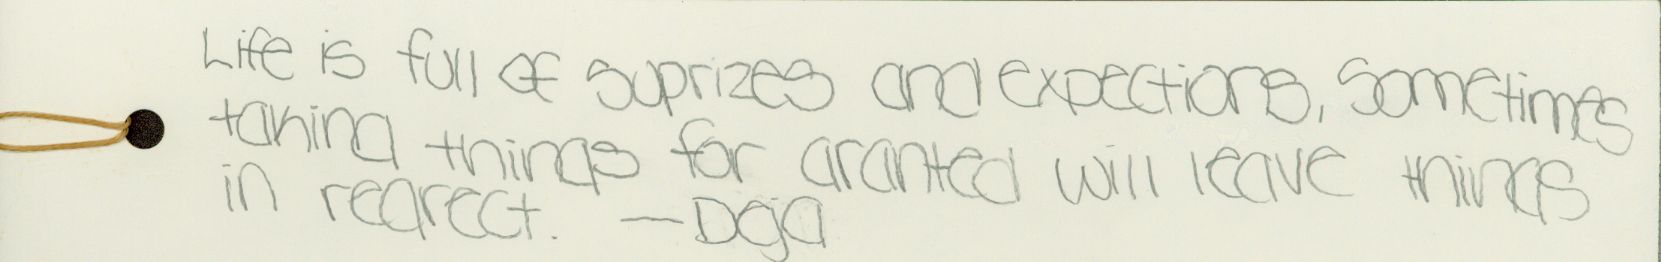 Life is full of suprizes and expections, Sometimes
taking things for granted will leave things
in regrect. —Deja